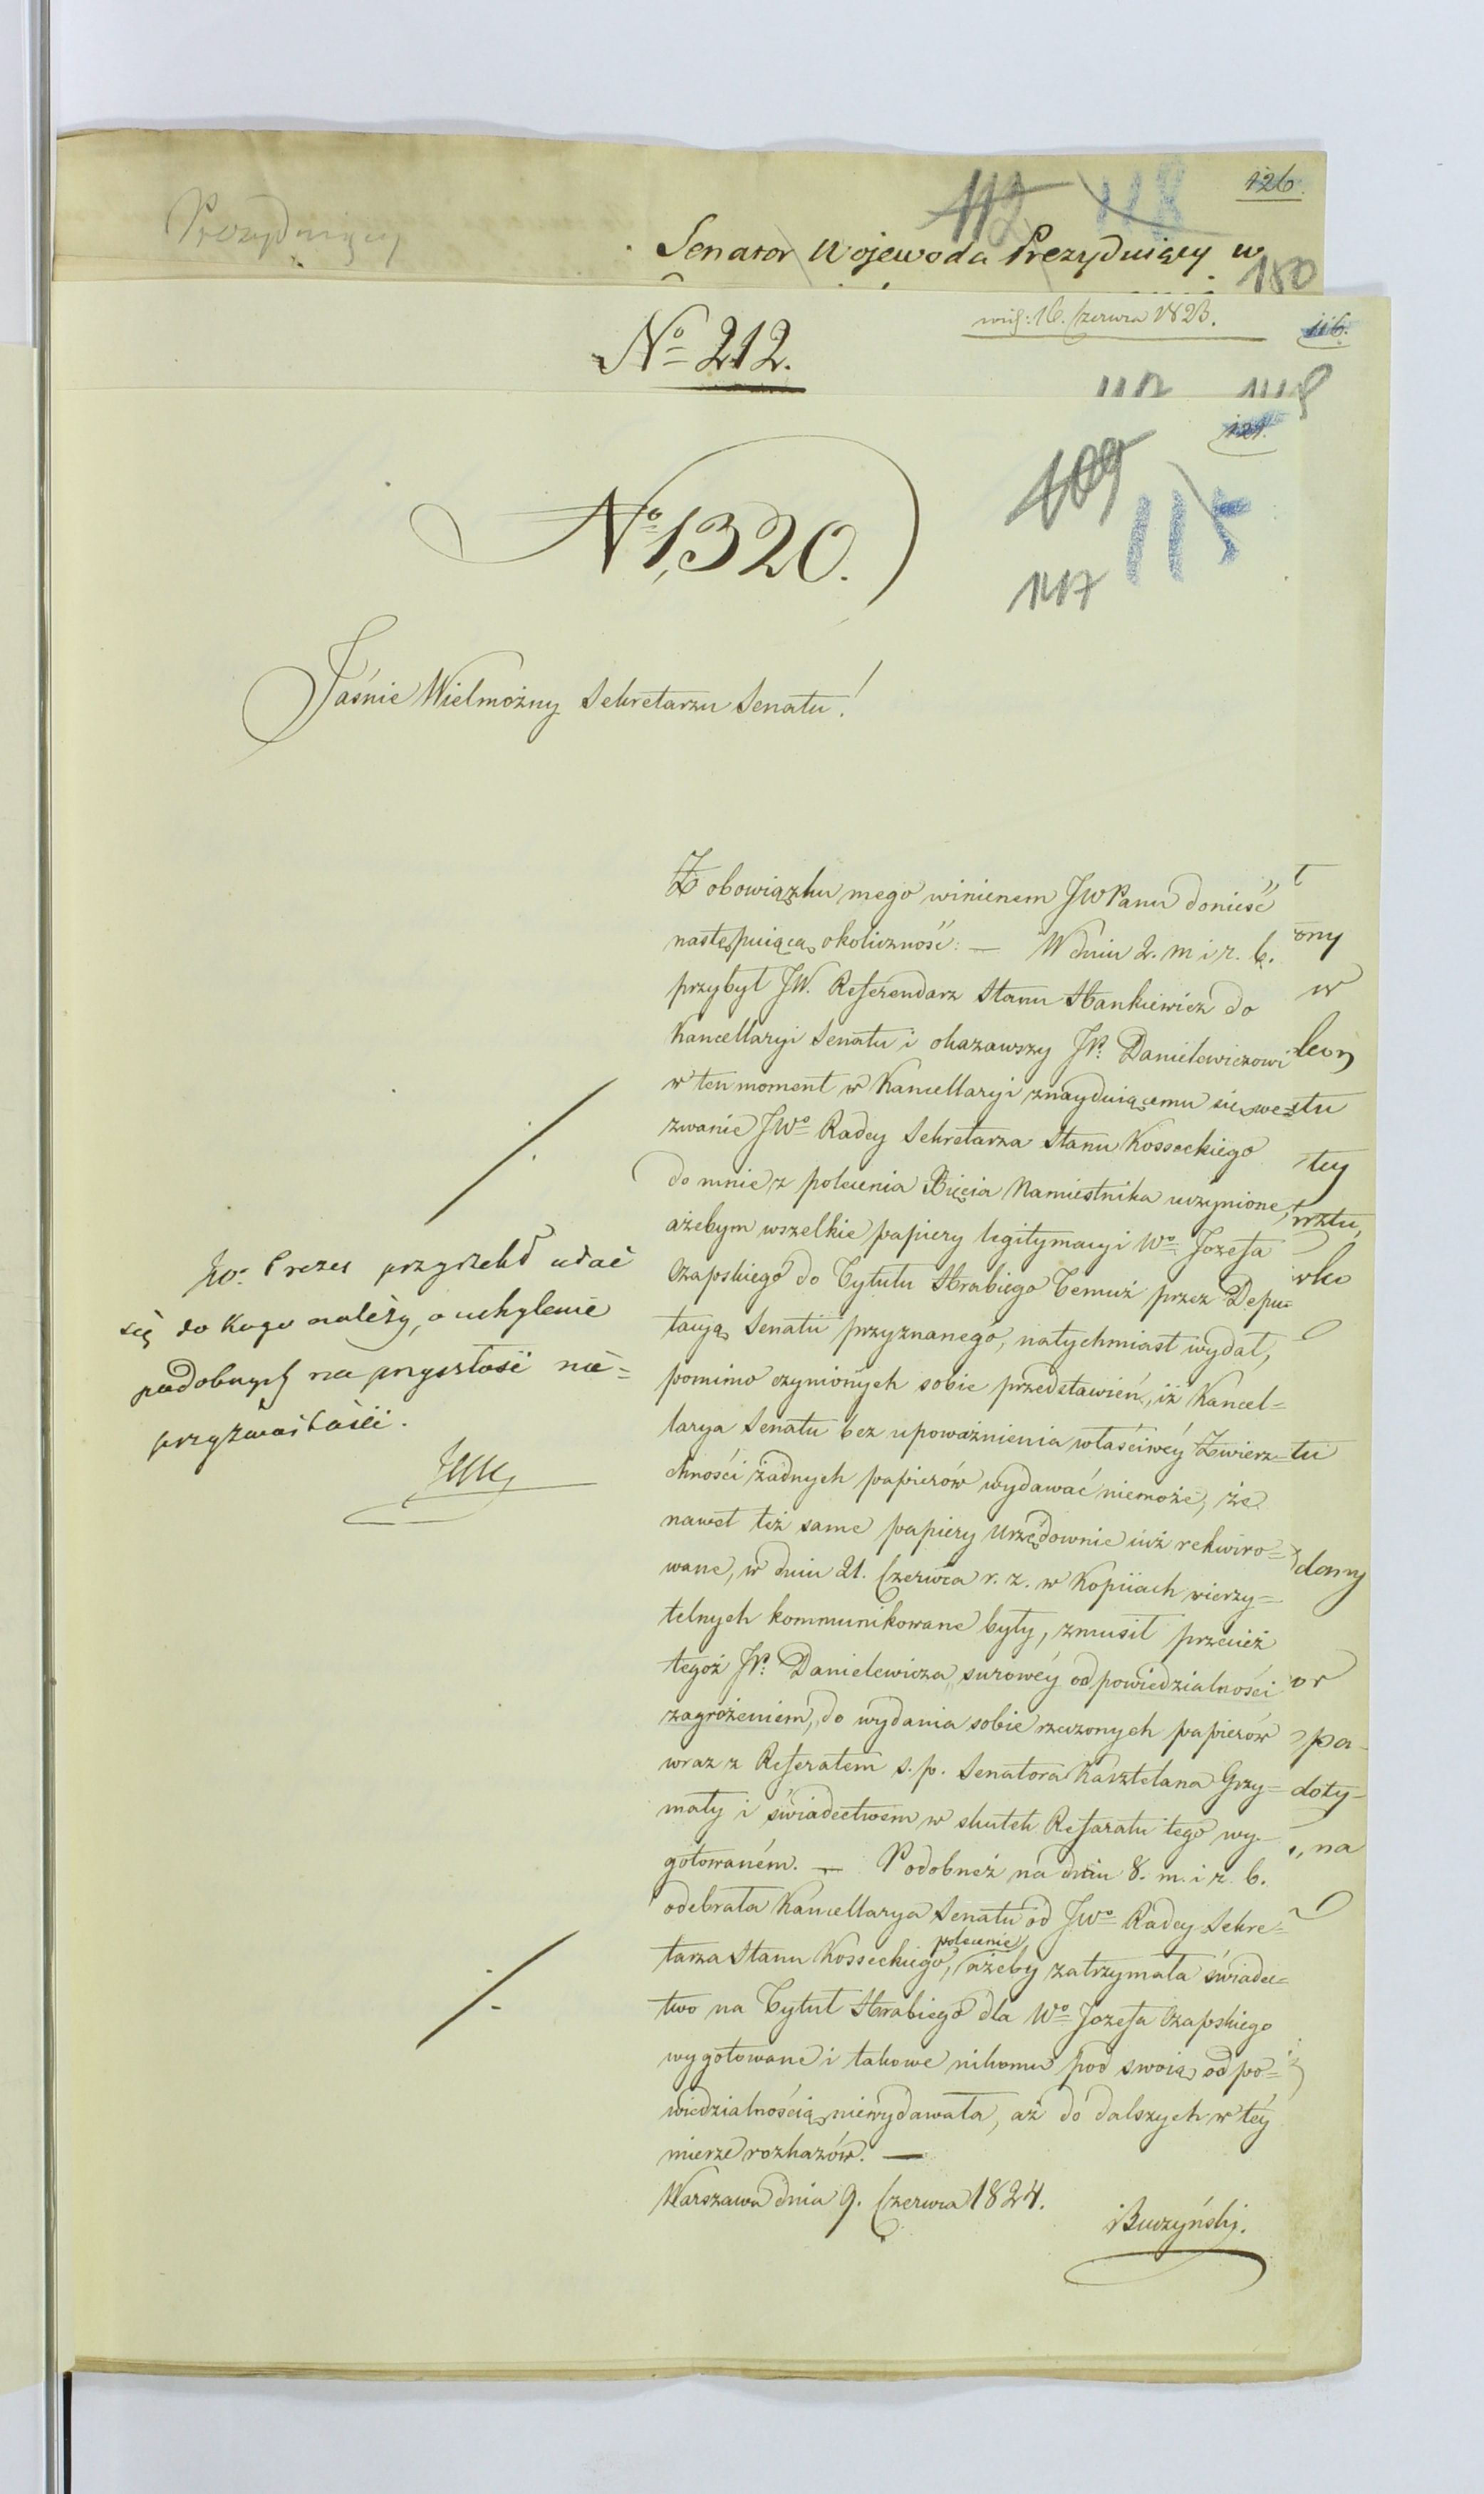 Prezyduiący
112 118 126.
Senator Wojewoda Prezyduiący w
180
No 212.
16. Czerwca 1823.
116.
121.
109
115
1117
No 1,320.
Jaśnie Wielmożny Sekretarzu Senatu!
Z obowiązku mego winienem JWPanu donieść
następuiącą okoliczność: — W dniu 2. m i r. b.
przybył JW. Referendarz Stanu Hankiewicz do
Kancellaryi Senatu i okazawszy JP. Danielewiczowi
w ten moment w Kancellaryi znayduiącemu się we=
zwanie JWo Radcy Sekretarza Stanu Kosseckiego
do mnie z polecenia Xięcia Namiestnika uczynione,
ażebym wszelkie papiery legitymacyi Wo Jozefa
Czapskiego do Tytułu Hrabiego Temuż przez Depu=
tacyą Senatu przyznanego, natychmiast wydał,
pomimo czynionych sobie przedstawień, iż Kancel=
larya Senatu bez upoważnienia właściwéy Zwierz=
chności żadnych papierów wydawać niemoże, że
nawet też same papiery urzędownie iuż rekwiro=
wane, w dniu 21. Czerwca r. z. w Kopiiach wierzy=
telnych kommunikowane były, zmusił przecież
tegoż JP. Danielewicza, surowéy odpowiedzialności
zagrożeniem, do wydania sobie rzeczonych papierów
wraz z Referatem s. p. Senatora Kasztelana Grzy=
mały i świadectwem w skutek Referatu tego wy=
gotowaném. — Podobnież na dniu 8. m. i r. b.
odebrała Kancellarya Senatu od JWo Radcy Sekre=
tarza Stanu Kosseckiego, polecenie, ażeby zatrzymała świadec=
two na Tytuł Hrabiego dla Wo Jozefa Czapskiego
wygotowane i takowe nikomu pod swoią odpo=
wiedzialnością niewydawała, aż do dalszych w téy
mierze rozkazów. —
Warszawa dnia 9. Czerwca 1824.
Buczyński.
JW. Prezes przyrzekł udać
się do kogo należy, o uchylenie
podobnych na przyszłość nie=
przyzwoitości.
ony
w
stu
tey
wko
tu
dany
or
pa-
doty-
na